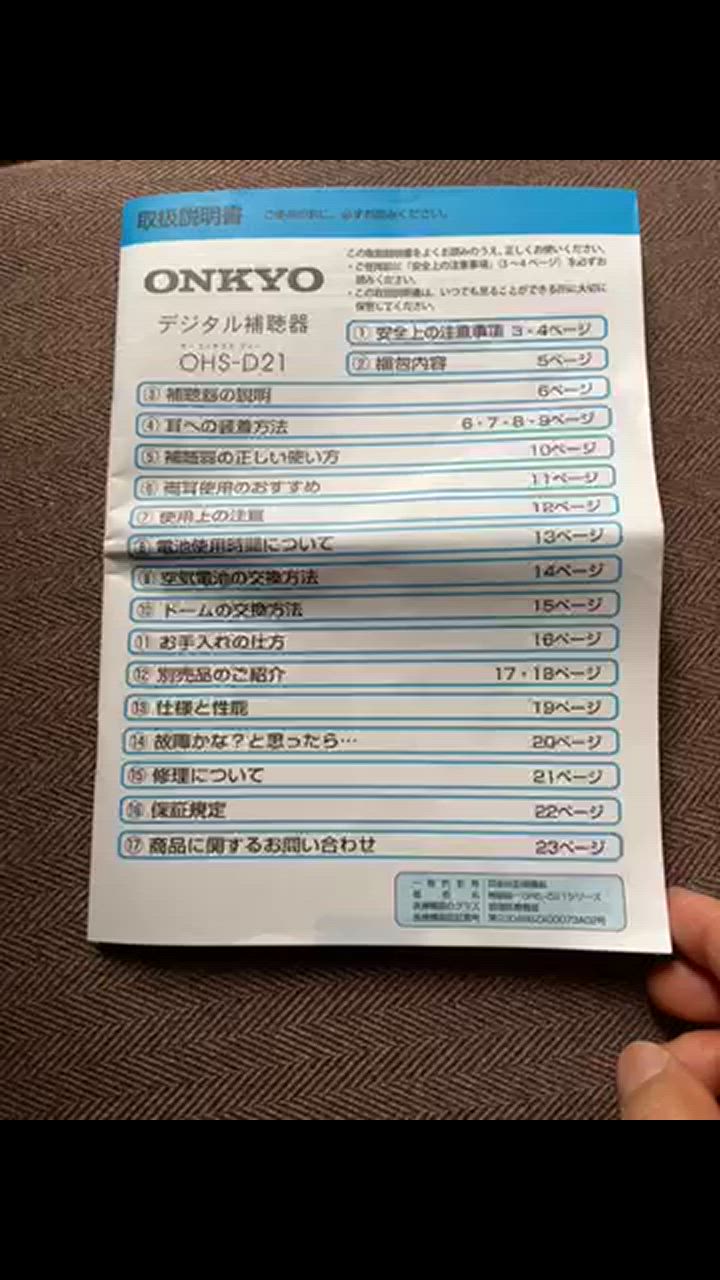 取扱説明書 ご使用の前に、必ずお読みください。
この取扱説明書をよくお読みのうえ、正しくお使いください。
・ご使用前に「安全上の注意事項」(3〜4ページ)を必ずお
読みください。
・この取扱説明書は、いつでも見ることができる所に大切に
保管してください。
ONKYO
デジタル補聴器
オーエイチエス ディー
OHS-D21
① 安全上の注意事項 3・4ページ
② 梱包内容 5ページ
③ 補聴器の説明 6ページ
④ 耳への装着方法 6・7・8・9ページ
⑤ 補聴器の正しい使い方 10ページ
⑥ 両耳使用のおすすめ 11ページ
⑦ 使用上の注意 12ページ
⑧ 電池使用時間について 13ページ
⑨ 空気電池の交換方法 14ページ
⑩ ドームの交換方法 15ページ
⑪ お手入れの仕方 16ページ
⑫ 別売品のご紹介 17・18ページ
⑬ 仕様と性能 19ページ
⑭ 故障かな?と思ったら… 20ページ
⑮ 修理について 21ページ
⑯ 保証規定 22ページ
⑰ 商品に関するお問い合わせ 23ページ
一般的名称
販売名 OHS-D21シリーズ
医療機器のクラス 管理医療機器
医療機器認証番号